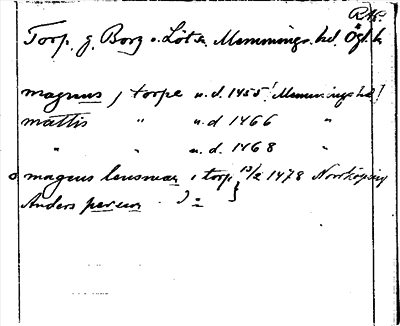 RAp.
Torp. g. Borg o. Löt sn Memmings hd. Ögl. h
magnus j torpe u.d. 1455! Memmings hd!
mattis " u.d 1466 "
" " u.d. 1468 "
o magnus lensman i torp } 13/2 1478 Norrköping
Anders persson ) =